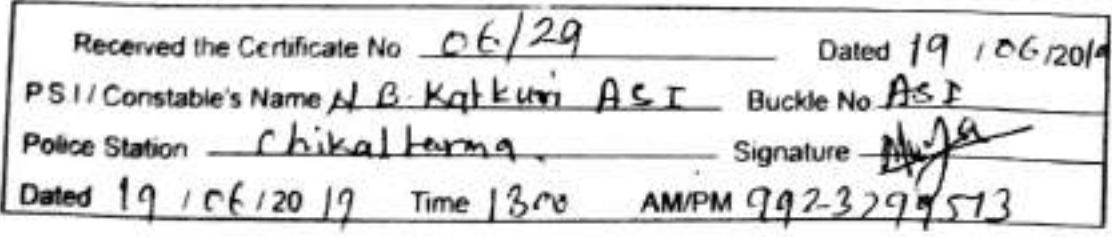 Received the Certificate No 06/29 Dated 19 / 06 /2019
P S I / Constable's Name N B. Katkuri ASI Buckle No ASI
Police Station Chikaltarma. Signature
Dated 19 / 06 / 20 19 Time 1300 AM/PM 9923299513